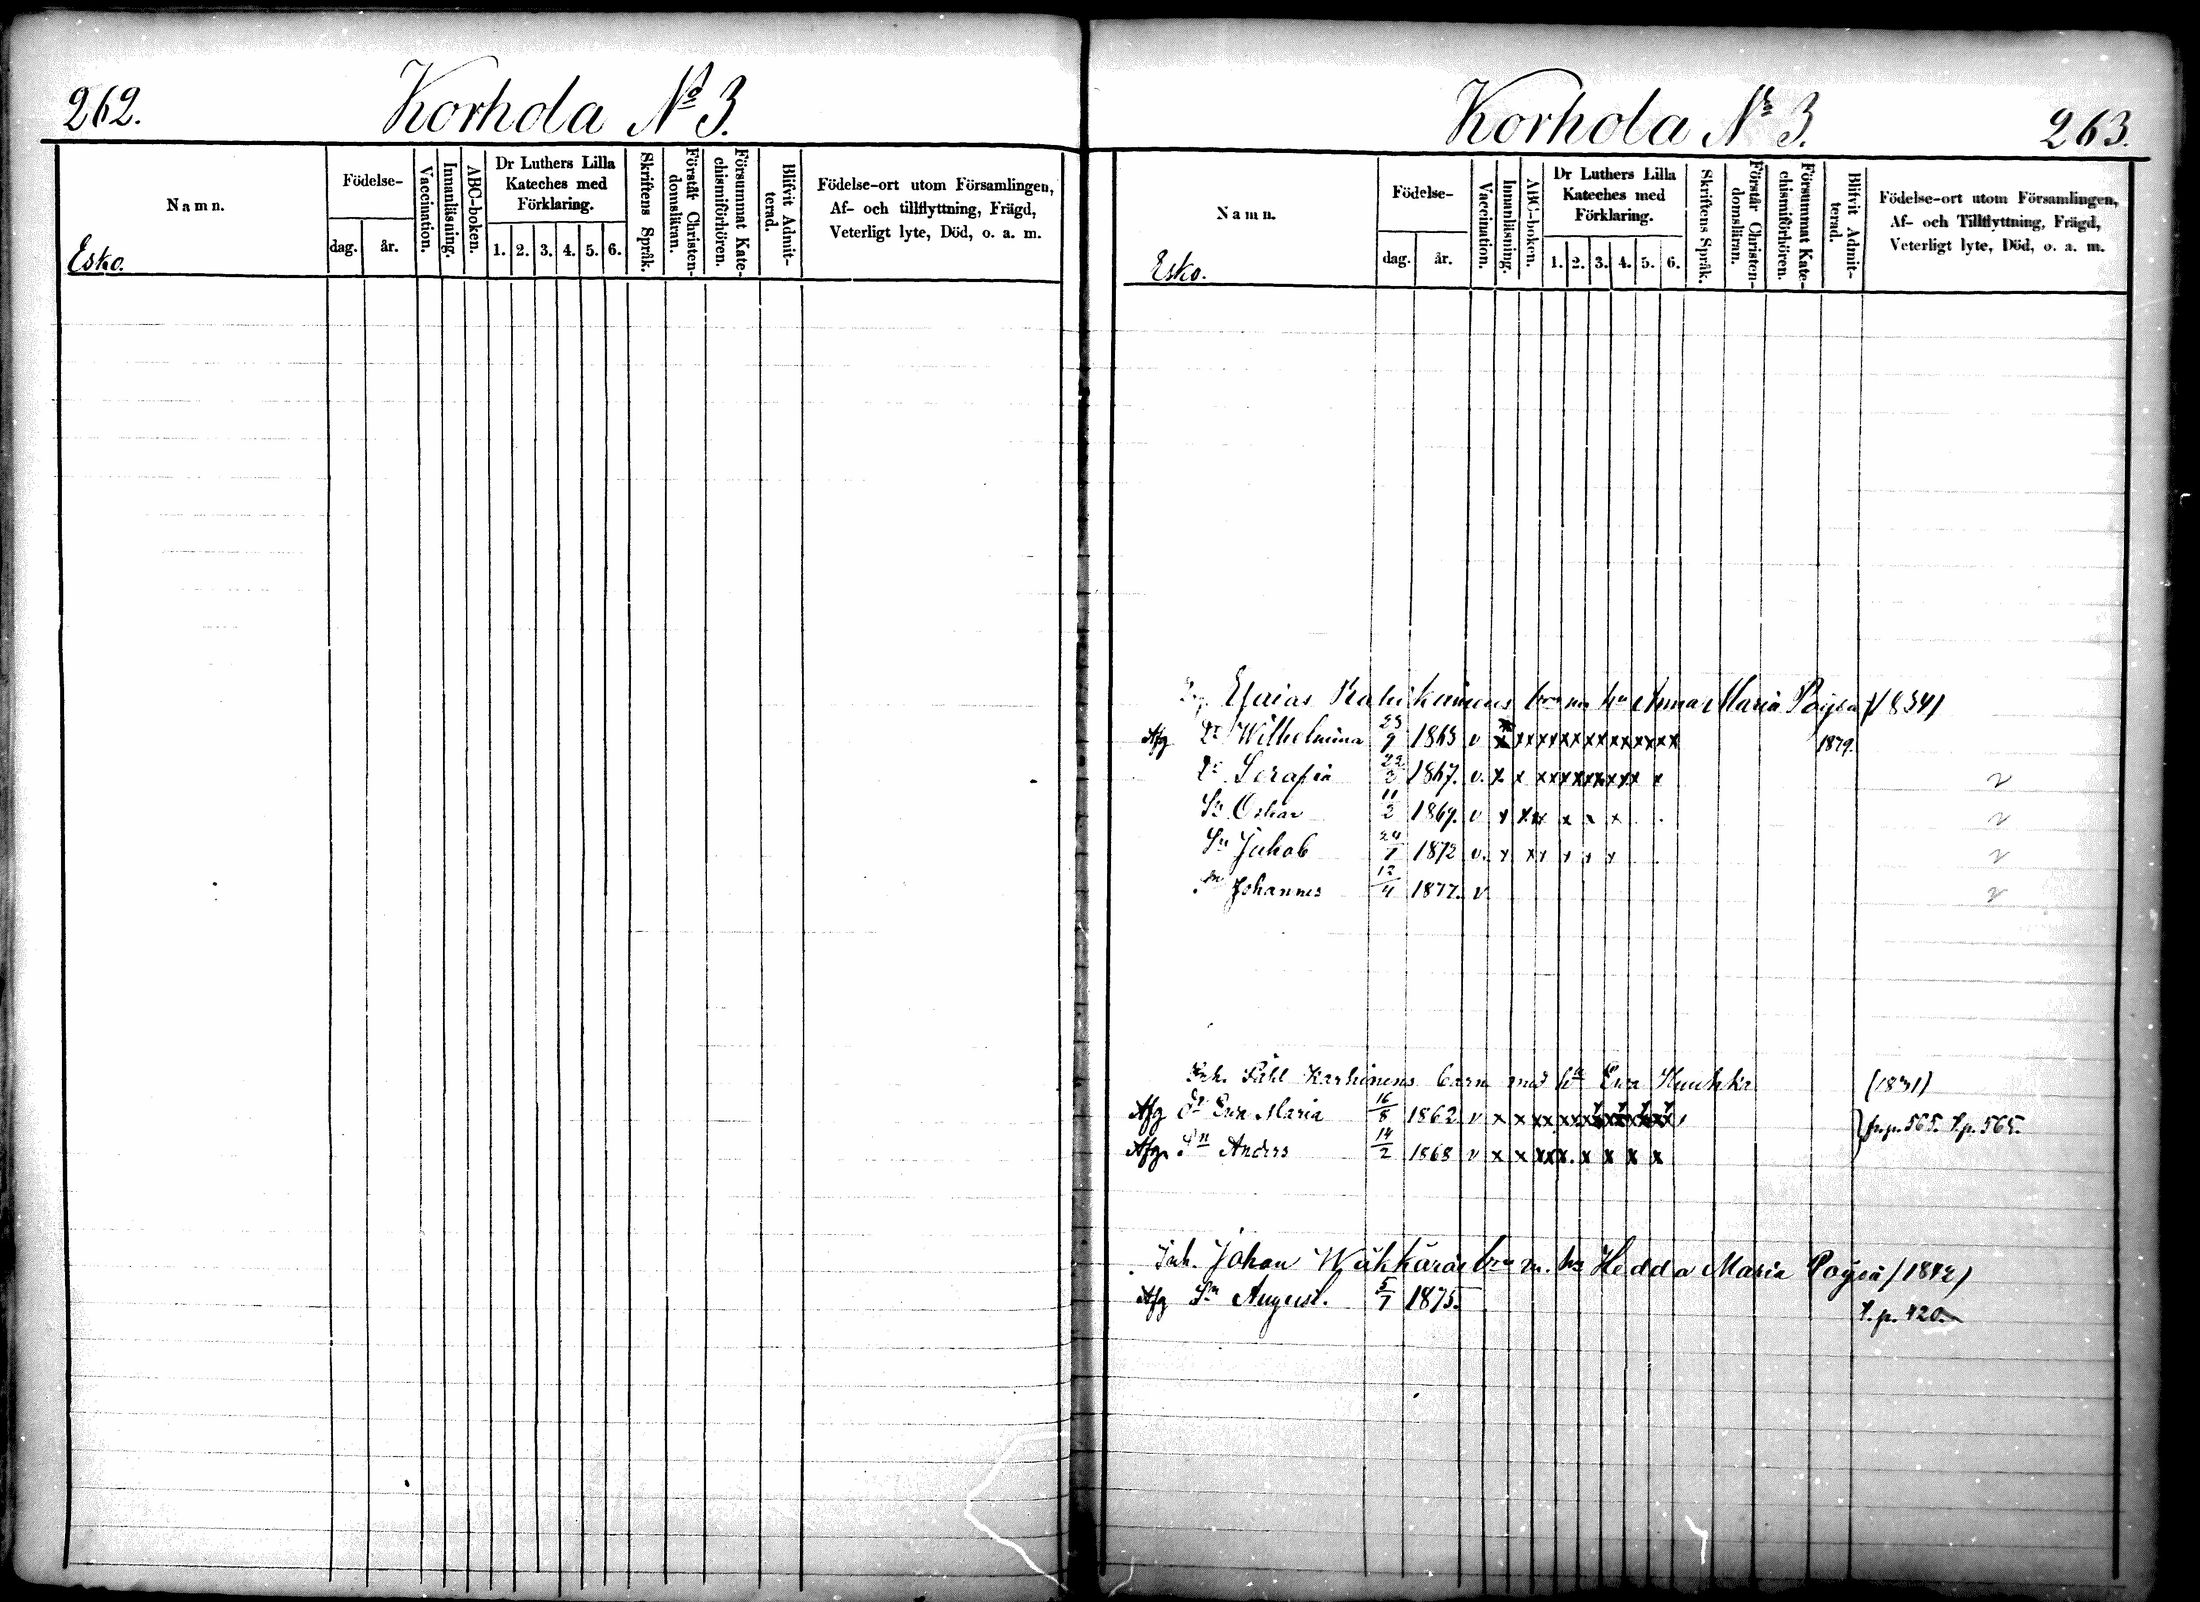 262. Korhola No 3.
Namn. Födelse- dag. år. Vaccination. Innanläsning. ABC-boken. Dr Luthers Lilla Kateches med Förklaring. 1. 2. 3. 4. 5. 6. Skriftens Språk. Förstår Christendomsläran. Försummat Katechismiförhören. Blifvit Admitterad. Födelse-ort utom Församlingen, Af- och tillflyttning, Frägd, Veterligt lyte, Död, o. a. m.
Esko.
Korhola No 3. 263.
Namn. Födelse- dag. år. Vaccination. Innanläsning. ABC-boken. Dr Luthers Lilla Kateches med Förklaring. 1. 2. 3. 4. 5. 6. Skriftens Språk. Förstår Christendomsläran. Försummat Katechismiförhören. Blifvit Admitterad. Födelse-ort utom Församlingen, Af- och Tillflyttning, Frägd, Veterligt lyte, Död, o. a. m.
Esko.
Esaias barn m. hu Anna Maria (1834)
Afg Dr Wilhelmina 23/9 1865 v x x x x x x x x x x x x x x 1879.
Dr Serafia 22/3 1867. v. x x x x x x x x x x x x
Sn Oskar 11/2 1869. v x x x x x x x
Sn Jakob 24/7 1872 v. x x x x x x
Sn Johannes 12/4 1877. v
Inh. Påhl Karhinens barn med hu Eva (1831)
Afg Dr Eva Maria 16/8 1862 v x x x x x x x x x x x fr. p. 565. t. p. 565.
Afg. Sn Anders 14/2 1868 v x x x x x. x x x x
Inh. Johan barn m. hu Hedda Maria (1842)
Afg Sn August. 5/7 1875.
t. p. 420.